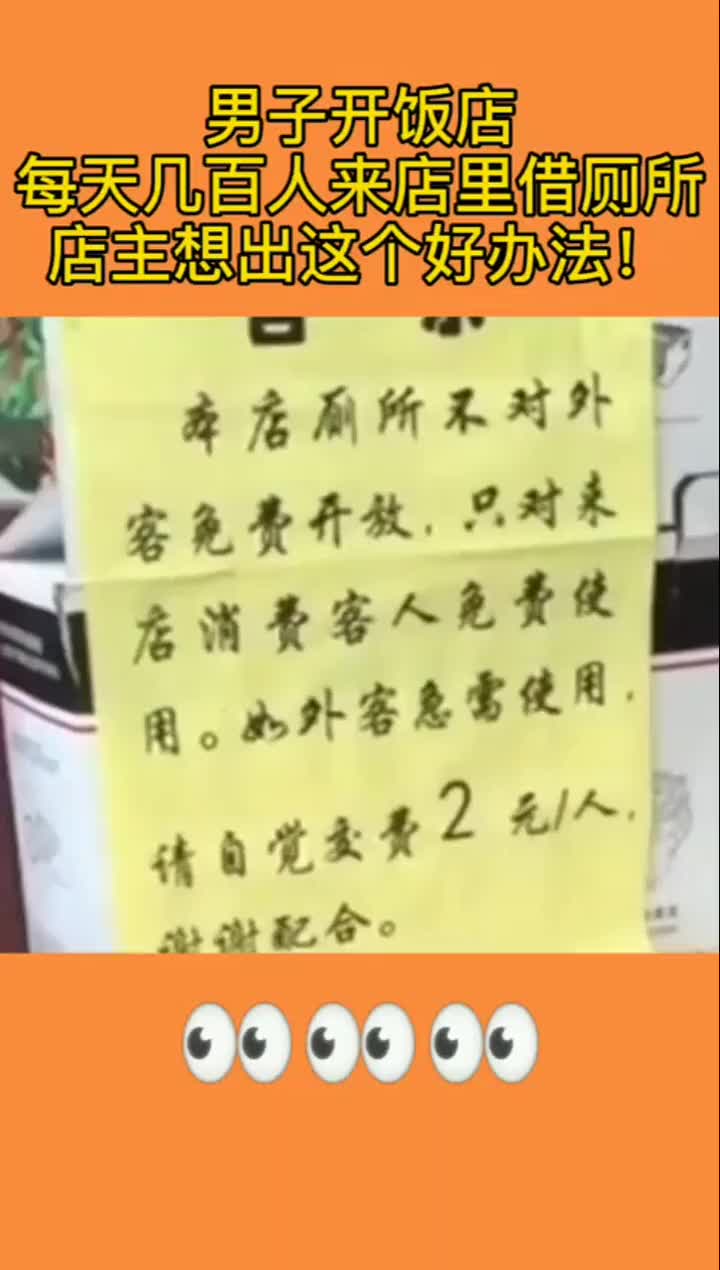 男子开饭店
每天几百人来店里借厕所
店主想出这个好办法！
本店厕所不对外
客免费开放，只对来
店消费客人免费使
用。如外客急需使用，
请自觉交费2元/人，
谢谢配合。